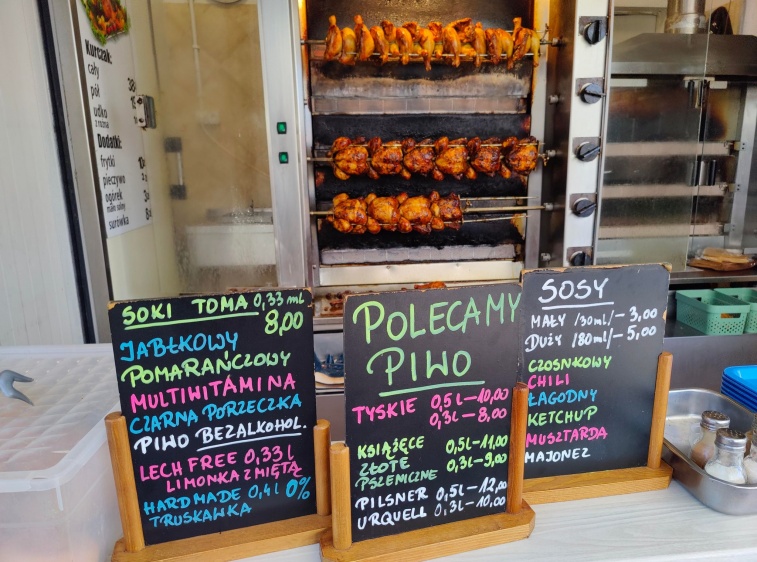 Kurczak:
cały
pół
udko
z rożna
Dodatki:
frytki
pieczywo
ogórek
surówka
SOKI TOMA 0,33 ml
8,00
JABŁKOWY
POMARAŃCZOWY
MULTIWITAMINA
CZARNA PORZECZKA
PIWO BEZALKOHOL.
LECH FREE 0,33 l
LIMONKA Z MIĘTĄ
HARDMADE 0,4 l 0%
TRUSKAWKA
POLECAMY
PIWO
TYSKIE 0,5l – 10,00
0,3l – 8,00
KSIĄŻĘCE 0,5l – 11,00
ZŁOTE 0,3l – 9,00
PSZENICZNE
PILSNER 0,5l – 12,00
URQUELL 0,3l – 10,00
SOSY
MAŁY /30ml/ – 3,00
DUŻY /80ml/ – 5,00
CZOSNKOWY
CHILI
ŁAGODNY
KETCHUP
MUSZTARDA
MAJONEZ